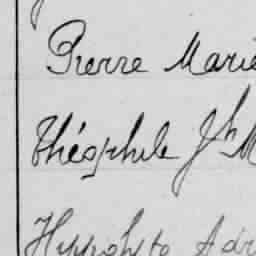 Pierre Marie
Théophile Jh M
Hippolyte Adr